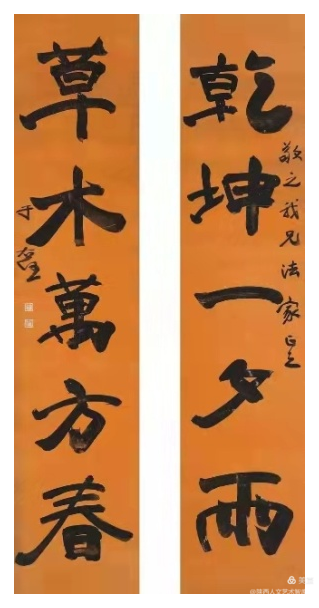 乾坤一夕雨
敬之我兄法家正之
草木萬方春
于右任
美篇
@陕西人文艺术家